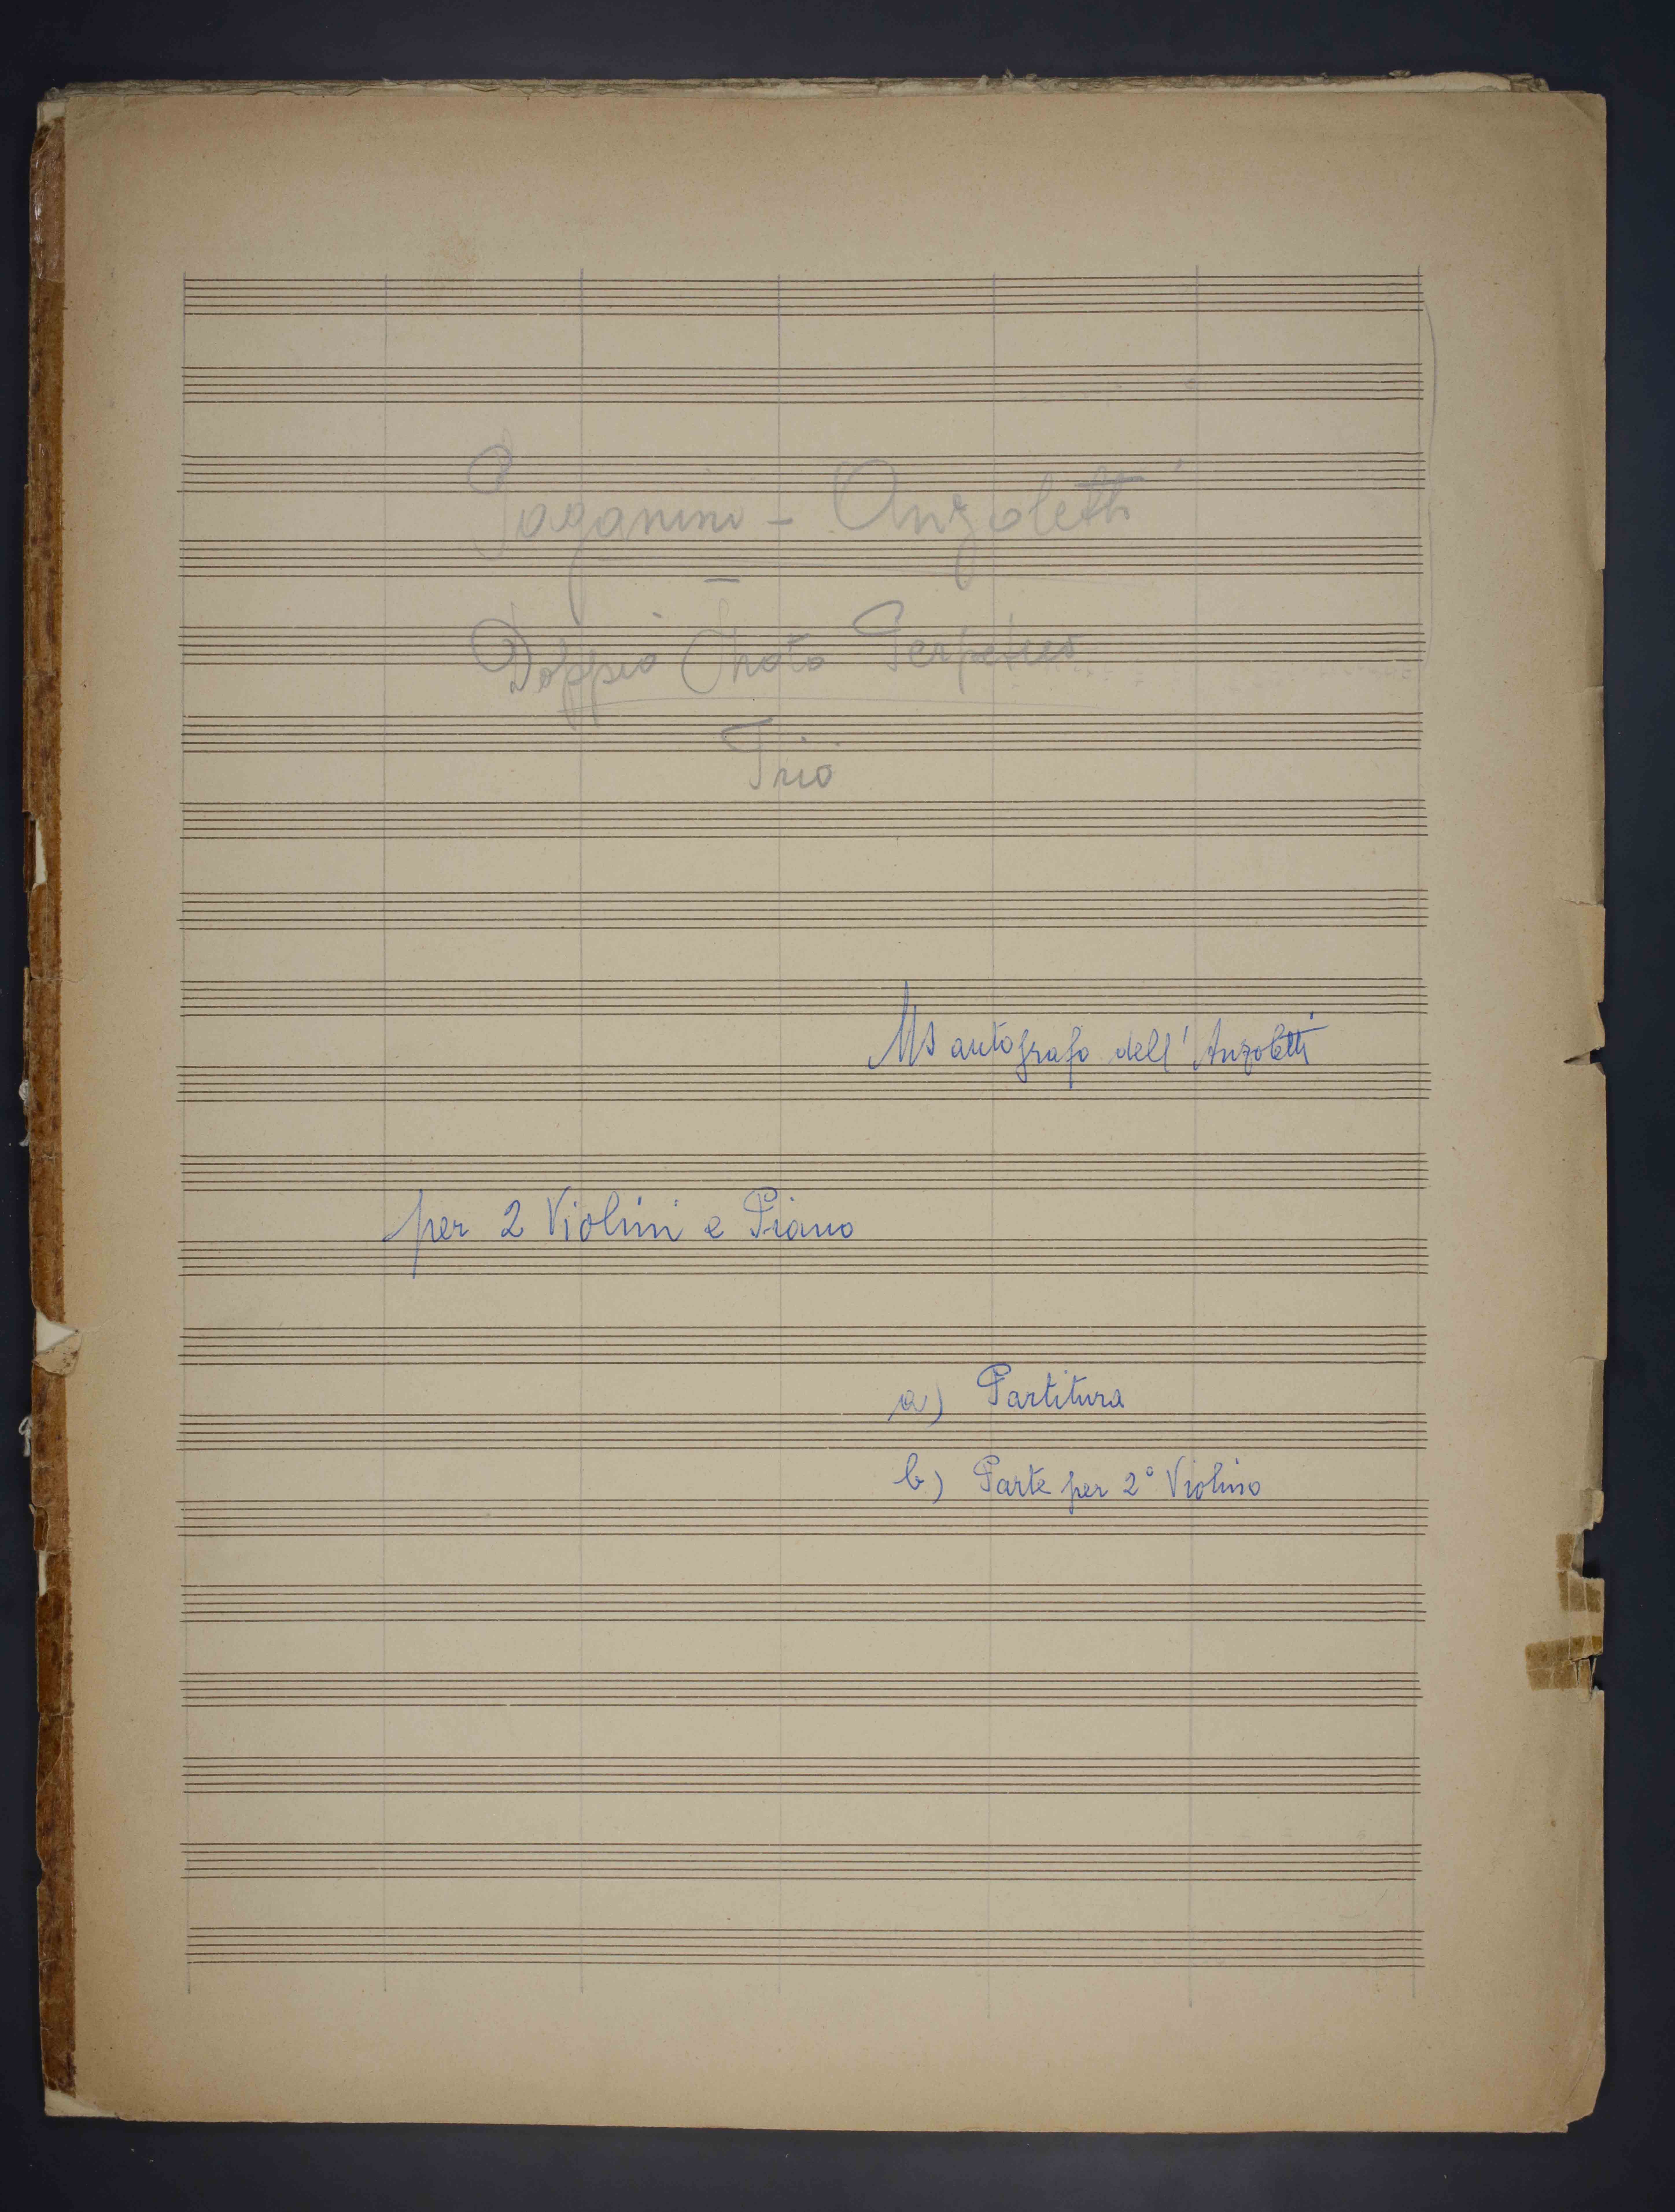 Paganini - Anzoletti
Doppio Moto Perpetuo
Trio
Ms autografo dell'Anzoletti
per 2 Violini e Piano
a) Partitura
b) Parte per 2° Violino